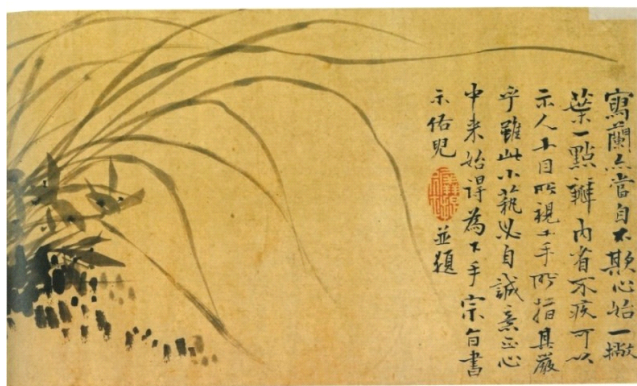 寫蘭亦當自不欺心始一撇
葉一點瓣內省不疚可以
示人十目所視十手所指其嚴
乎雖此小藝必自誠意正心
中来始得為下手宗旨書
示佑兒 並題